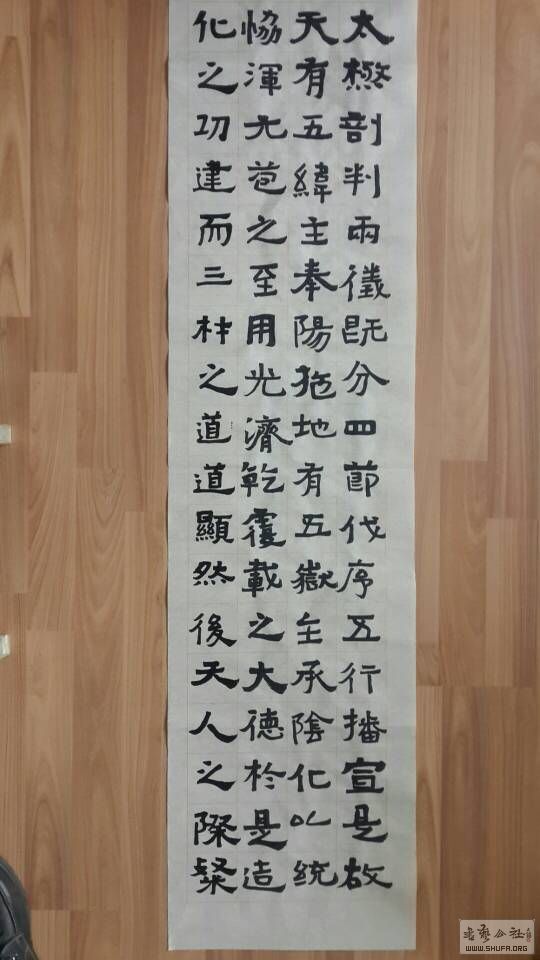 太極剖判兩儀既分四節代序五行播宣是故
天有五緯主奉陽施地有五嶽主承陰化以統
協渾元苞之至用光濟乾覆載之大德於是造
化之功建而三材之道道顯然後天人之際粲
書藝公社
WWW.SHUFA.ORG